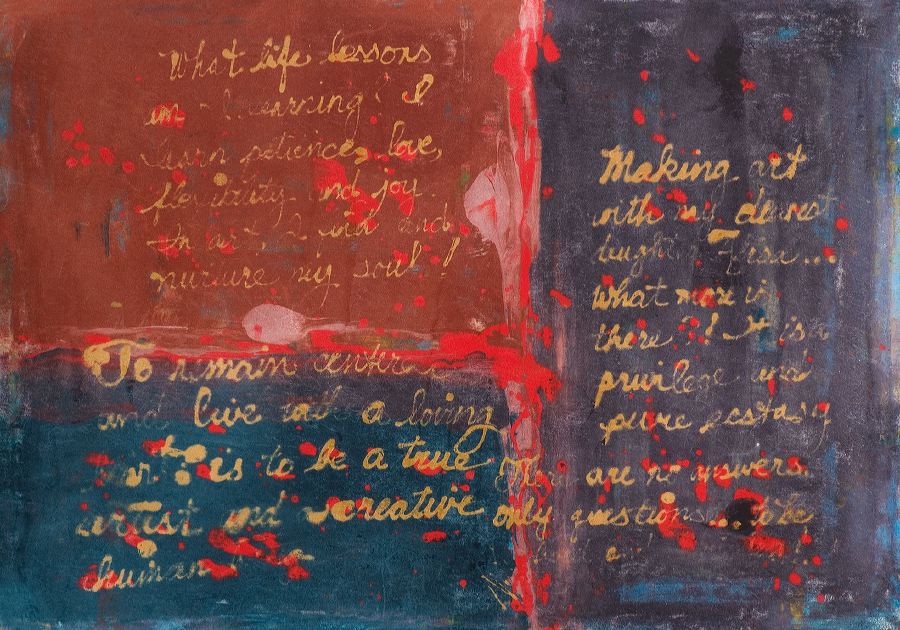 What life lessons
am I learning? I
learn patience, love,
flexibility and joy.
In art, I find and
nurture my soul!
To remain centered
and live with a loving
is to be a true
artist and creative
human
Making art
with my dearest
daughter
What more is
there?! It is a
privilege and
pure ecstasy
There are no answers.
only questions... to be
and